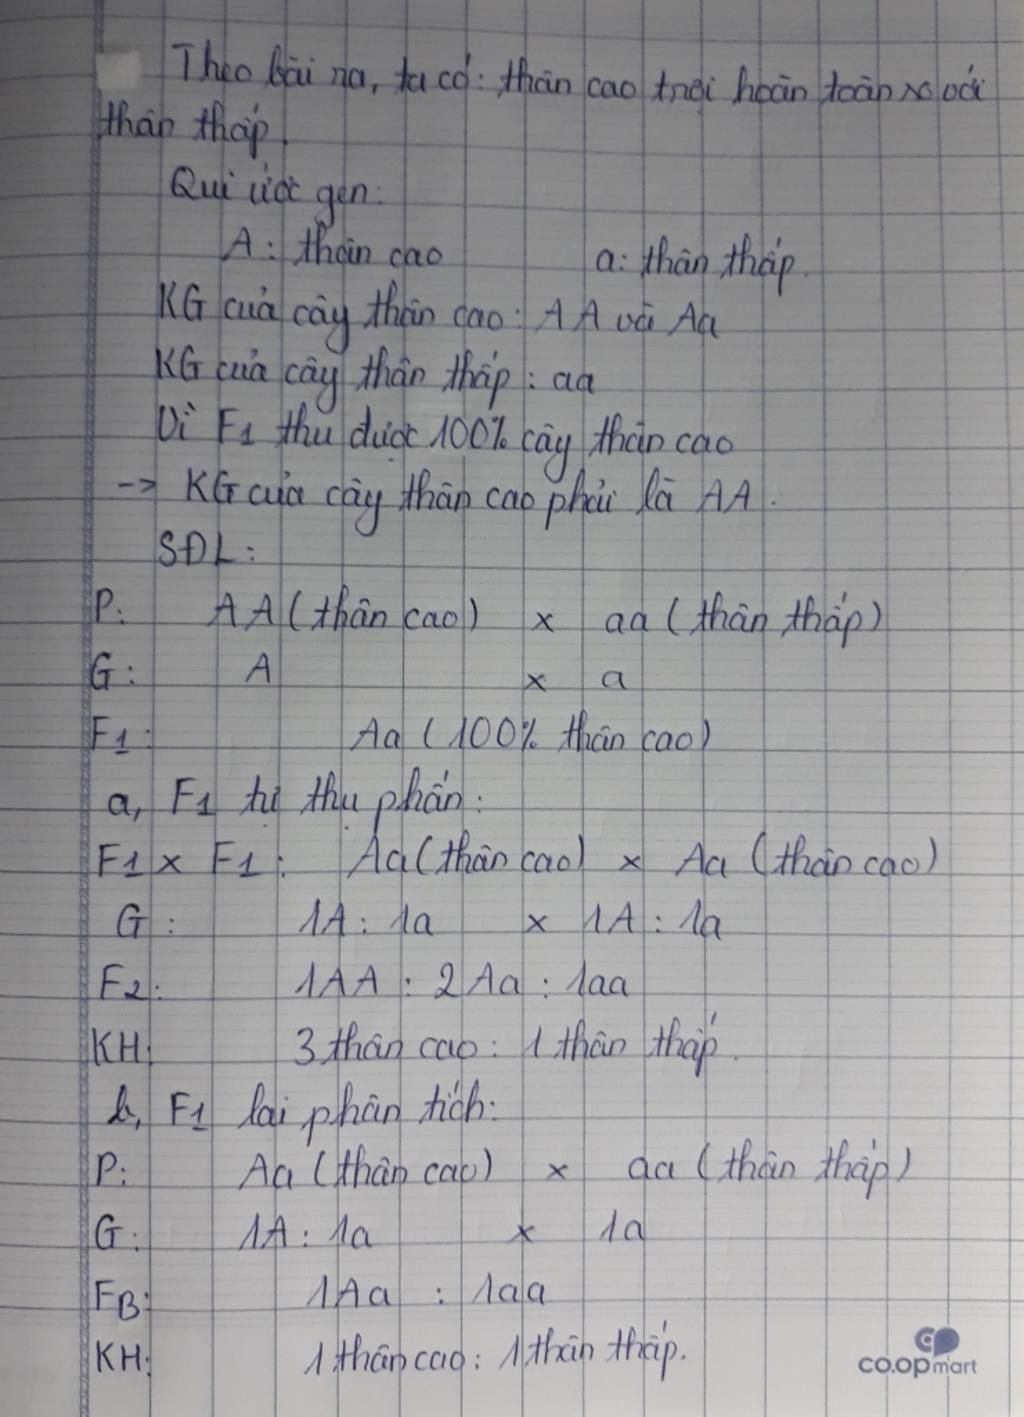 Theo bài ra, ta có: thân cao trội hoàn toàn so với
thân thấp.
Qui ước gen:
A: thân cao a: thân thấp.
KG của cây thân cao: AA và Aa
KG của cây thân thấp: aa
Vì F1 thu được 100% cây thân cao
-> KG của cây thân cao phải là AA.
SĐL:
P: AA (thân cao) x aa (thân thấp)
G: A x a
F1: Aa (100% thân cao)
a, F1 tự thụ phấn:
F1 x F1: Aa (thân cao) x Aa (thân cao)
G: 1A: 1a x 1A: 1a
F2: 1AA: 2Aa: 1aa
KH: 3 thân cao: 1 thân thấp.
b, F1 lai phân tích:
P: Aa (thân cao) x aa (thân thấp)
G: 1A: 1a x 1a
FB: 1Aa : 1aa
KH: 1 thân cao: 1 thân thấp.
co.opmart